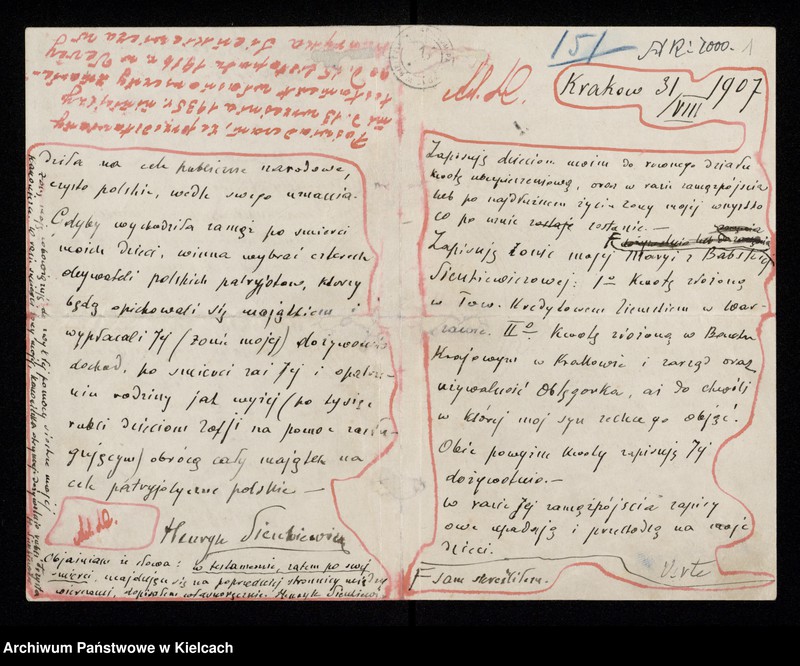 151
AR: 2000.
1
M. D.
Kraków 31/VIII 1907
Zapisuję dzieciom moim do równego działu
kwotę ubezpieczeniową, oraz w razie zamążpójścia
lub po najdłuższem życiu żony mojej wszystko
co po mnie zostaje zostanie. —
Zapisuję żonie mojej Maryi z Babskich
Sienkiewiczowej: Iº kwotę złożoną
w Tow. Kredytowem Ziemskiem w War-
szawie. IIº Kwotę złożoną w Banku
Krajowym w Krakowie i zarząd oraz
używalność Oblęgorka, aż do chwili
w której mój syn zechce go objąć.
Obie powyższe kwoty zapisuję Jej
dożywotnio. —
w razie Jej zamążpójścia zapisy
owe upadają i przechodzą na moje
dzieci.
F sam skreśliłem.
Verte
działa na cele publiczne narodowe,
czysto polskie, wedle swego uznania.
Gdyby wychodziła zamąż po śmierci
moich dzieci, winna wybrać czterech
obywateli polskich patryjotów, którzy
będą opiekowali się majątkiem i
wypłacali Jej (żonie mojej) dożywotni
dochód, po śmierci zaś Jej i
rodziny jak wyżej (po tysiąc
rubli dzieciom Zofji na pomoc
) obrócą cały majątek na
cele patryjotyczne polskie —
M. D.
Henryk Sienkiewicz
Objaśniam iż słowa: w testamencie, zatem po swej
śmierci, znajdujące się na poprzedniej stronicy między
wierszami, dopisałem własnoręcznie. Henryk Sienkiewicz
Poświadczam, że przedstawiony
mi d. 13 września 1935 r. niniejszy
testament własnoręczny zmarłe-
go d. 15 listopada 1916 r. w Vevey
Henryka Sienkiewicza
Archiwum Państwowe w Kielcach